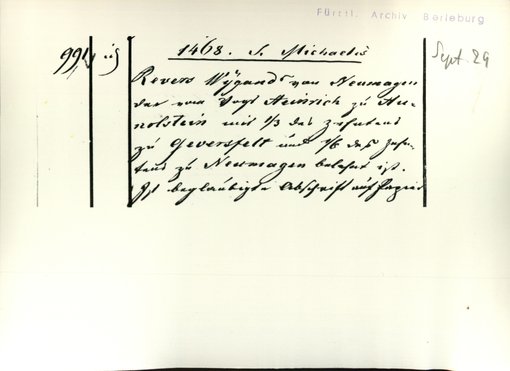 Fürstl. Archiv Berleburg
1468. S. Michaelis
Sept. 29
Revers Wÿgands von Neumagen
der vom Vogt Heinrich zu Hu-
nolstein mit 1/3 des Zehntens
zu Geversfelt und 1/6 des Zehn-
tens zu Neumagen belehnt ist.
Gl. beglaubigte Abschrift auf Papier